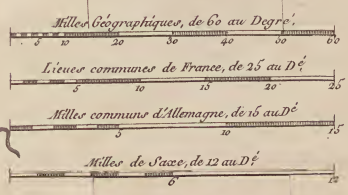 Milles Géographiques, de 60 au Degré.
5 10 20 30 40 50 60
Lieues communes de France, de 25 au Dé.
5 10 15 20 25
Milles communs d'Allemagne, de 15 au Dé.
5 10 15
Milles de Saxe, de 12 au Dé.
6 12